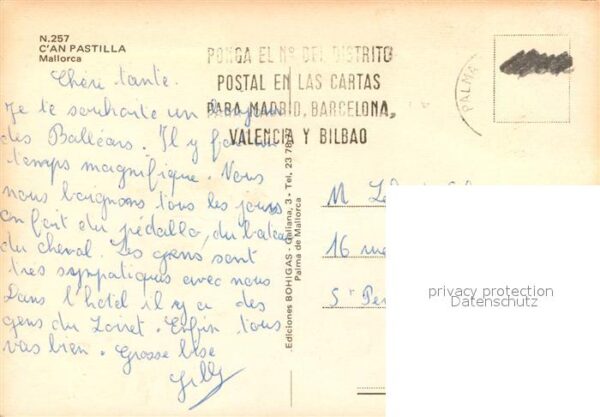 N.257
C'AN PASTILLA
Mallorca
PONGA EL Nº DEL DISTRITO
POSTAL EN LAS CARTAS
PARA MADRID, BARCELONA,
VALENCIA Y BILBAO
PALMA
Chère tante.
Je te souhaite un bonjour
des Baléars. Il y fait un
temps magnifique. Nous
nous baignons tous les jours
on fait du pédallo, du bateau
du cheval. Les gens sont
très sympatiques avec nous
Dans l'hôtel il y a des
gens du Loiret. Enfin tous
vas bien. Grosse bise
Ediciones BOHIGAS - Galiana, 3 - Tel. 23
Palma de Mallorca
M
16 rue
privacy protection
Datenschutz